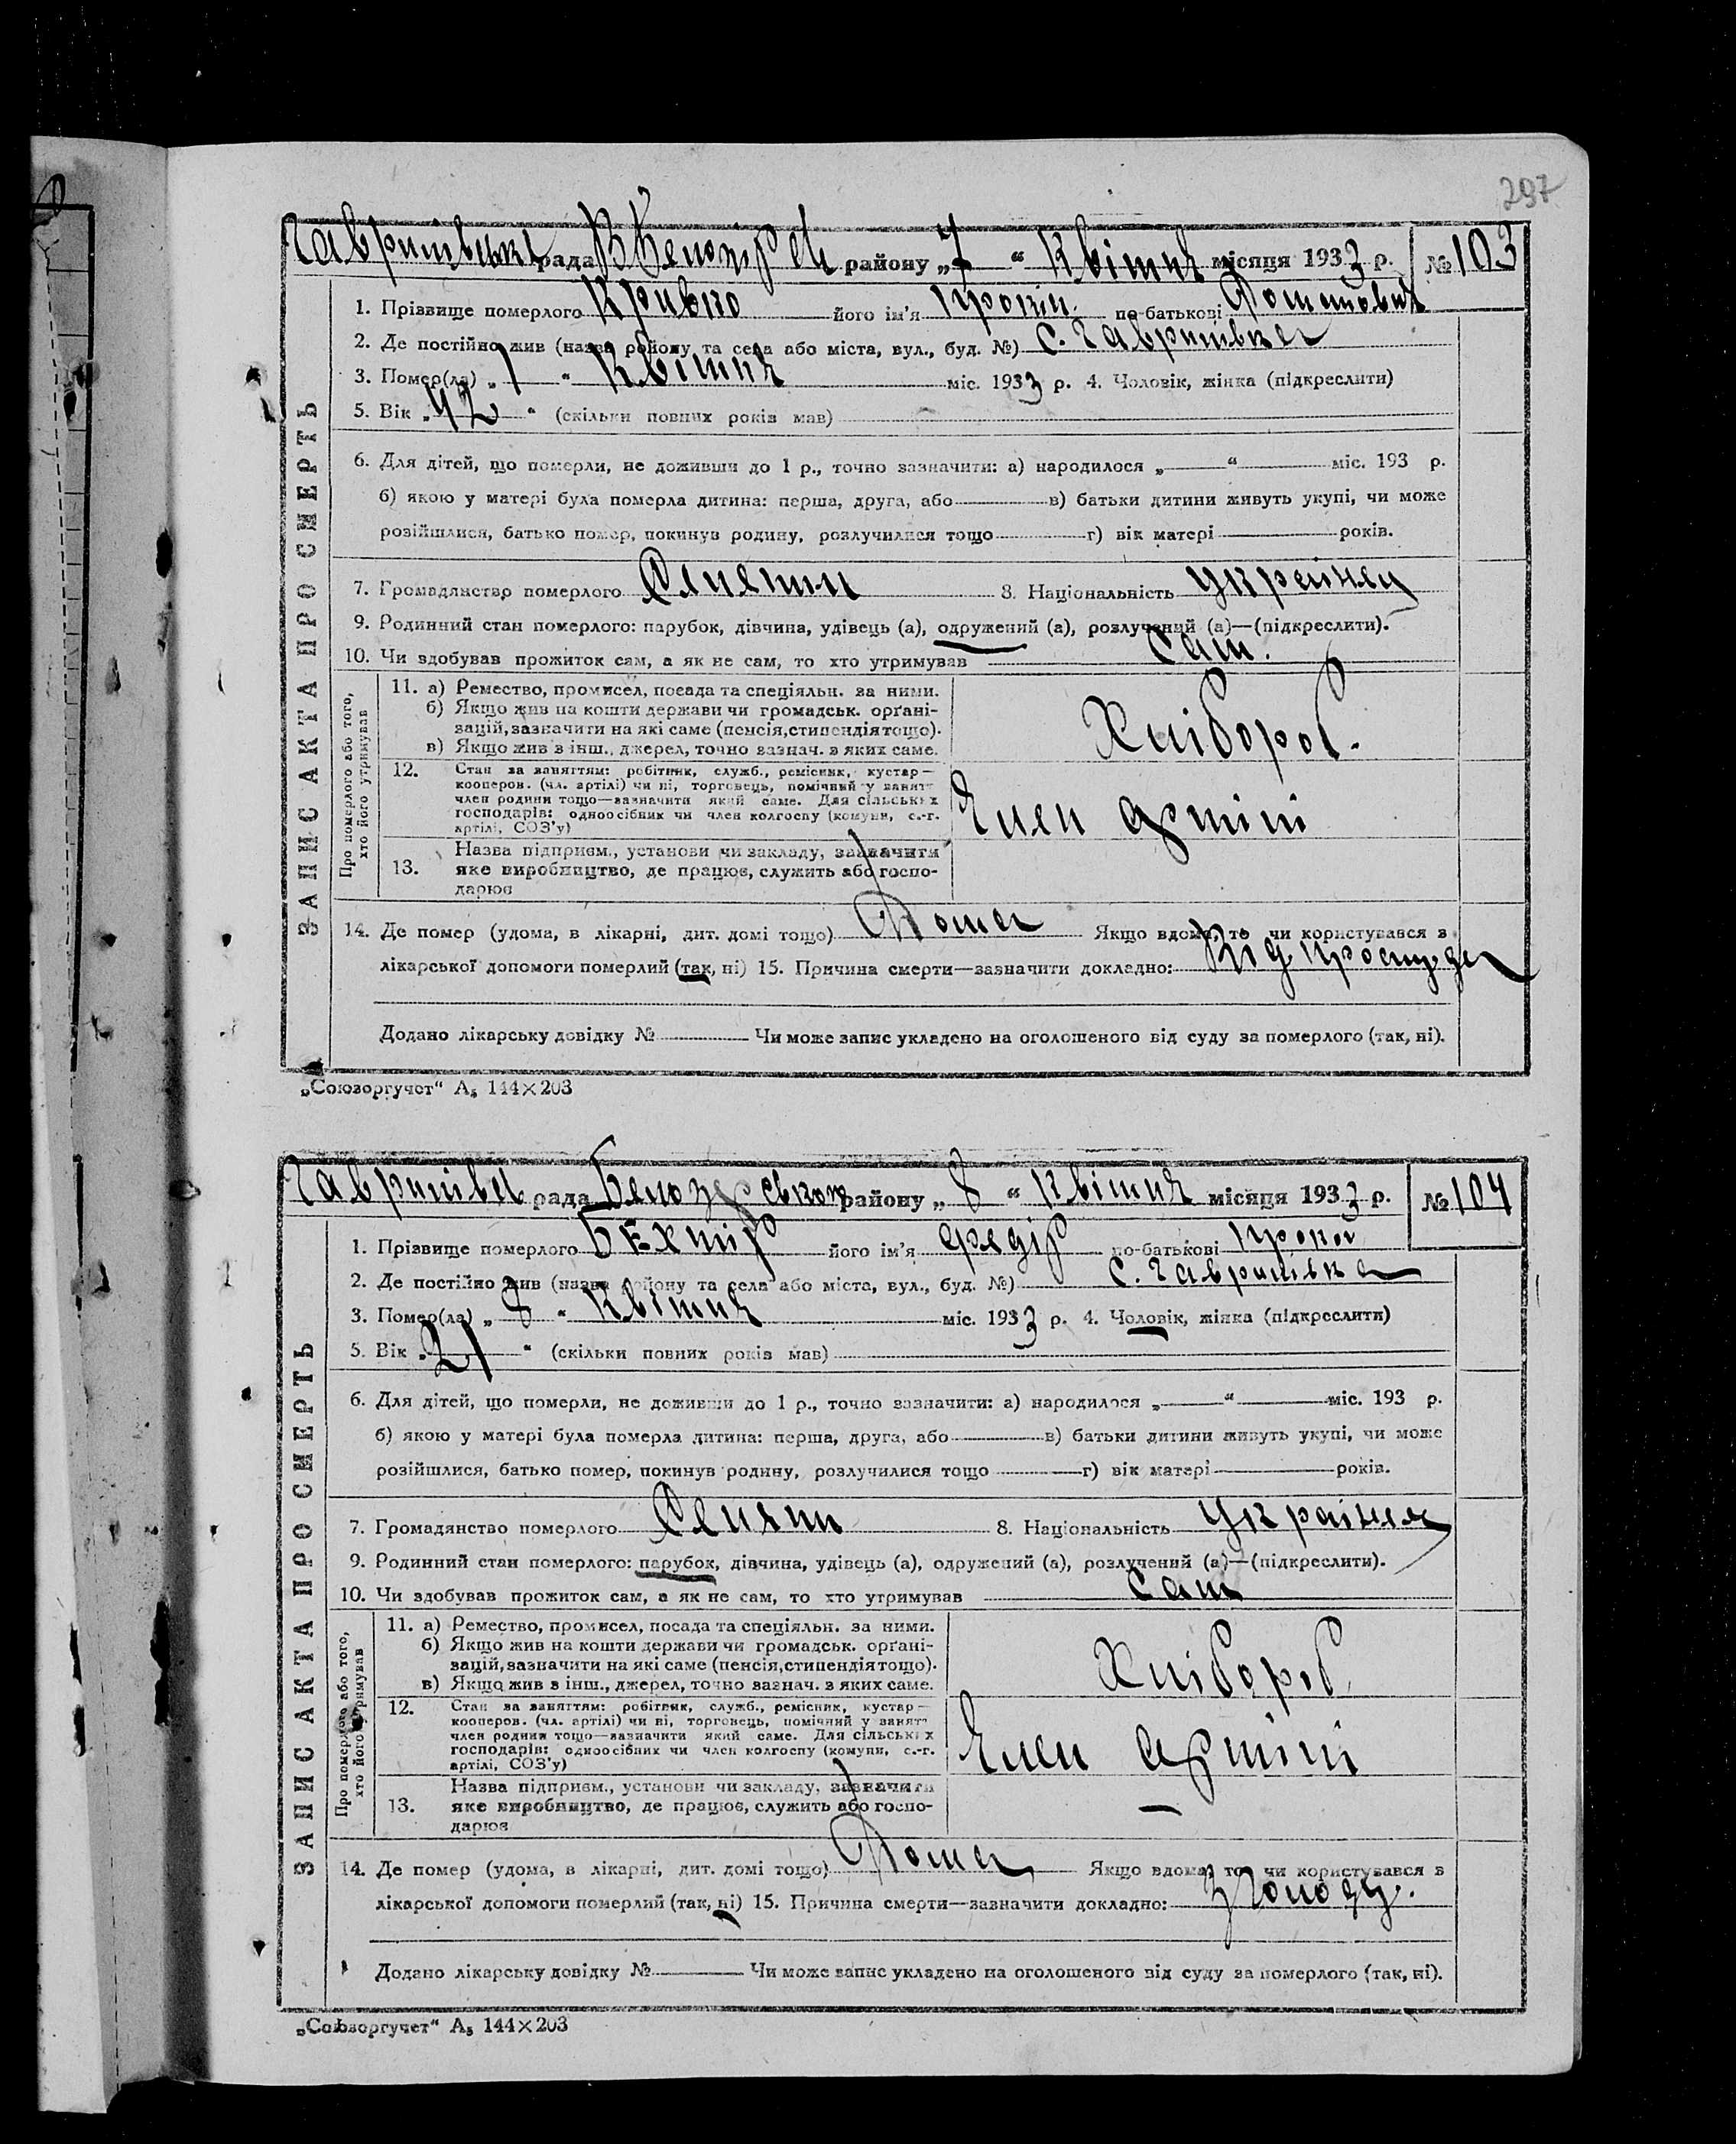 297
Гавришівськ рада району „7“ Квітня місяця 1933 р. № 103
ЗАПИС АКТА ПРО СМЕРТЬ
1. Прізвище померлого Кривко його ім'я Прокіп по-батькові Потапович
2. Де постійно жив (назва району та села або міста, вул., буд. №) с. Гавришівка
3. Помер(ла) „7“ Квітня міс. 1933 р. 4. Чоловік, жінка (підкреслити)
5. Вік „42“ (скільки повних років мав)
6. Для дітей, що померли, не доживши до 1 р., точно зазначити: а) народилося „ “ міс. 193 р.
б) якою у матері була померла дитина: перша, друга, або в) батьки дитини живуть укупі, чи може
розійшлися, батько помер, покинув родину, розлучилися тощо г) вік матері років.
7. Громадянство померлого 8. Національність українец
9. Родинний стан померлого: парубок, дівчина, удівець (а), одружений (а), розлучений (а)—(підкреслити).
10. Чи здобував прожиток сам, а як не сам, то хто утримував Сам.
Про померлого або того,
хто його утримував
11. а) Ремество, промисел, посада та спеціяльн. за ними.
б) Якщо жив на кошти держави чи громадськ. орґані-
зацій, зазначити на які саме (пенсія, стипендія тощо).
в) Якщо жив з інш., джерел, точно зазнач. з яких саме.
Хлібороб.
12. Стан за заняттям: робітник, служб., ремісник, кустар—
кооперов. (чл. артілі) чи ні, торговець, помічний у занятт
член родини тощо—зазначити який саме. Для сільських
господарів: одноосібник чи член колгоспу (комуни, с.-г.
артілі, СОЗ'у)
Член артілі
13. Назва підприєм., установи чи закладу, зазначити
яке виробництво, де працює, служить або госпо-
дарює
14. Де помер (удома, в лікарні, дит. домі тощо) Дома Якщо вдома, то чи користувався з
лікарської допомоги померлий (так, ні) 15. Причина смерти—зазначити докладно: Від простуда
Додано лікарську довідку № Чи може запис укладено на оголошеного від суду за померлого (так, ні).
„Союзоргучет“ А₅ 144×203
Гавришівсь рада Белозерською району „8“ Квітня місяця 1933 р. № 104
ЗАПИС АКТА ПРО СМЕРТЬ
1. Прізвище померлого Бехтір його ім'я Федір по-батькові Проко
2. Де постійно жив (назва району та села або міста, вул., буд. №) с. Гавришівка
3. Помер(ла) „8“ Квітня міс. 1933 р. 4. Чоловік, жінка (підкреслити)
5. Вік „21“ (скільки повних років мав)
6. Для дітей, що померли, не доживши до 1 р., точно зазначити: а) народилося „ “ міс. 193 р.
б) якою у матері була померла дитина: перша, друга, або в) батьки дитини живуть укупі, чи може
розійшлися, батько помер, покинув родину, розлучилися тощо г) вік матері років.
7. Громадянство померлого 8. Національність Українец
9. Родинний стан померлого: парубок, дівчина, удівець (а), одружений (а), розлучений (а)—(підкреслити).
10. Чи здобував прожиток сам, а як не сам, то хто утримував Сам
Про померлого або того,
хто його утримував
11. а) Ремество, промисел, посада та спеціяльн. за ними.
б) Якщо жив на кошти держави чи громадськ. орґані-
зацій, зазначити на які саме (пенсія, стипендія тощо).
в) Якщо жив з інш., джерел, точно зазнач. з яких саме.
Хлібороб
12. Стан за заняттям: робітник, служб., ремісник, кустар—
кооперов. (чл. артілі) чи ні, торговець, помічний у занятт
член родини тощо—зазначити який саме. Для сільських
господарів: одноосібник чи член колгоспу (комуни, с.-г.
артілі, СОЗ'у)
Член артілі
13. Назва підприєм., установи чи закладу, зазначити
яке виробництво, де працює, служить або госпо-
дарює
14. Де помер (удома, в лікарні, дит. домі тощо) Дома Якщо вдома, то чи користувався з
лікарської допомоги померлий (так, ні) 15. Причина смерти—зазначити докладно: З голоду.
Додано лікарську довідку № Чи може запис укладено на оголошеного від суду за померлого (так, ні).
„Союзоргучет“ А₅ 144×203